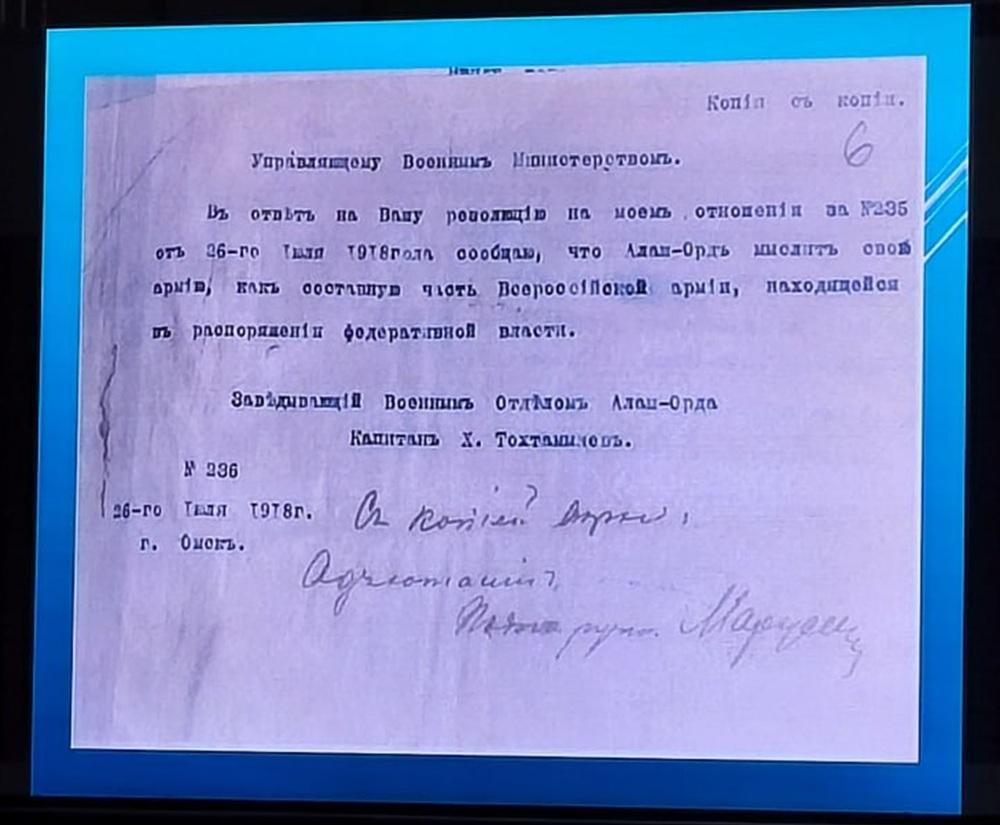 Копія съ копіи.
6
Управляющему Военнымъ Министерствомъ.
Въ отвѣтъ на Вашу резолюцію на моемъ отношеніи за №235
отъ 26-го Іюля 1918года сообщаю, что Алаш-Орда мыслитъ свою
армію, какъ составную часть Всероссійской арміи, находящейся
въ распоряженіи федеративной власти.
Завѣдывающій Военнымъ Отдѣломъ Алаш-Орда
Капитанъ Х. Тохтамышевъ.
№ 236
26-го Іюля 1918г.
г. Омскъ.
Съ копіей
Адъютантъ